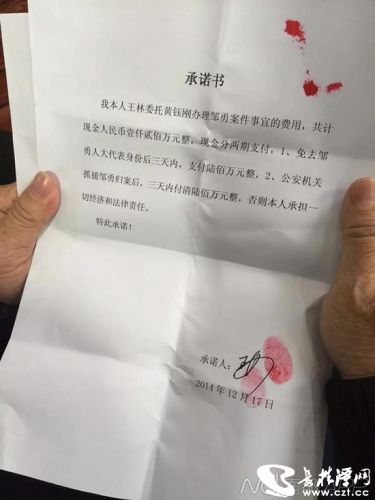 承诺书
我本人王林委托黄钰刚办理邹勇案件事宜的费用，共计
现金人民币壹仟贰佰万元整，现金分两期支付，1、免去邹
勇人大代表身份后三天内，支付陆佰万元整，2、公安机关
抓捕邹勇归案后，三天内付清陆佰万元整，否则本人承担一
切经济和法律责任。
特此承诺！
承诺人：
2014年12月17日
www.czt.cc